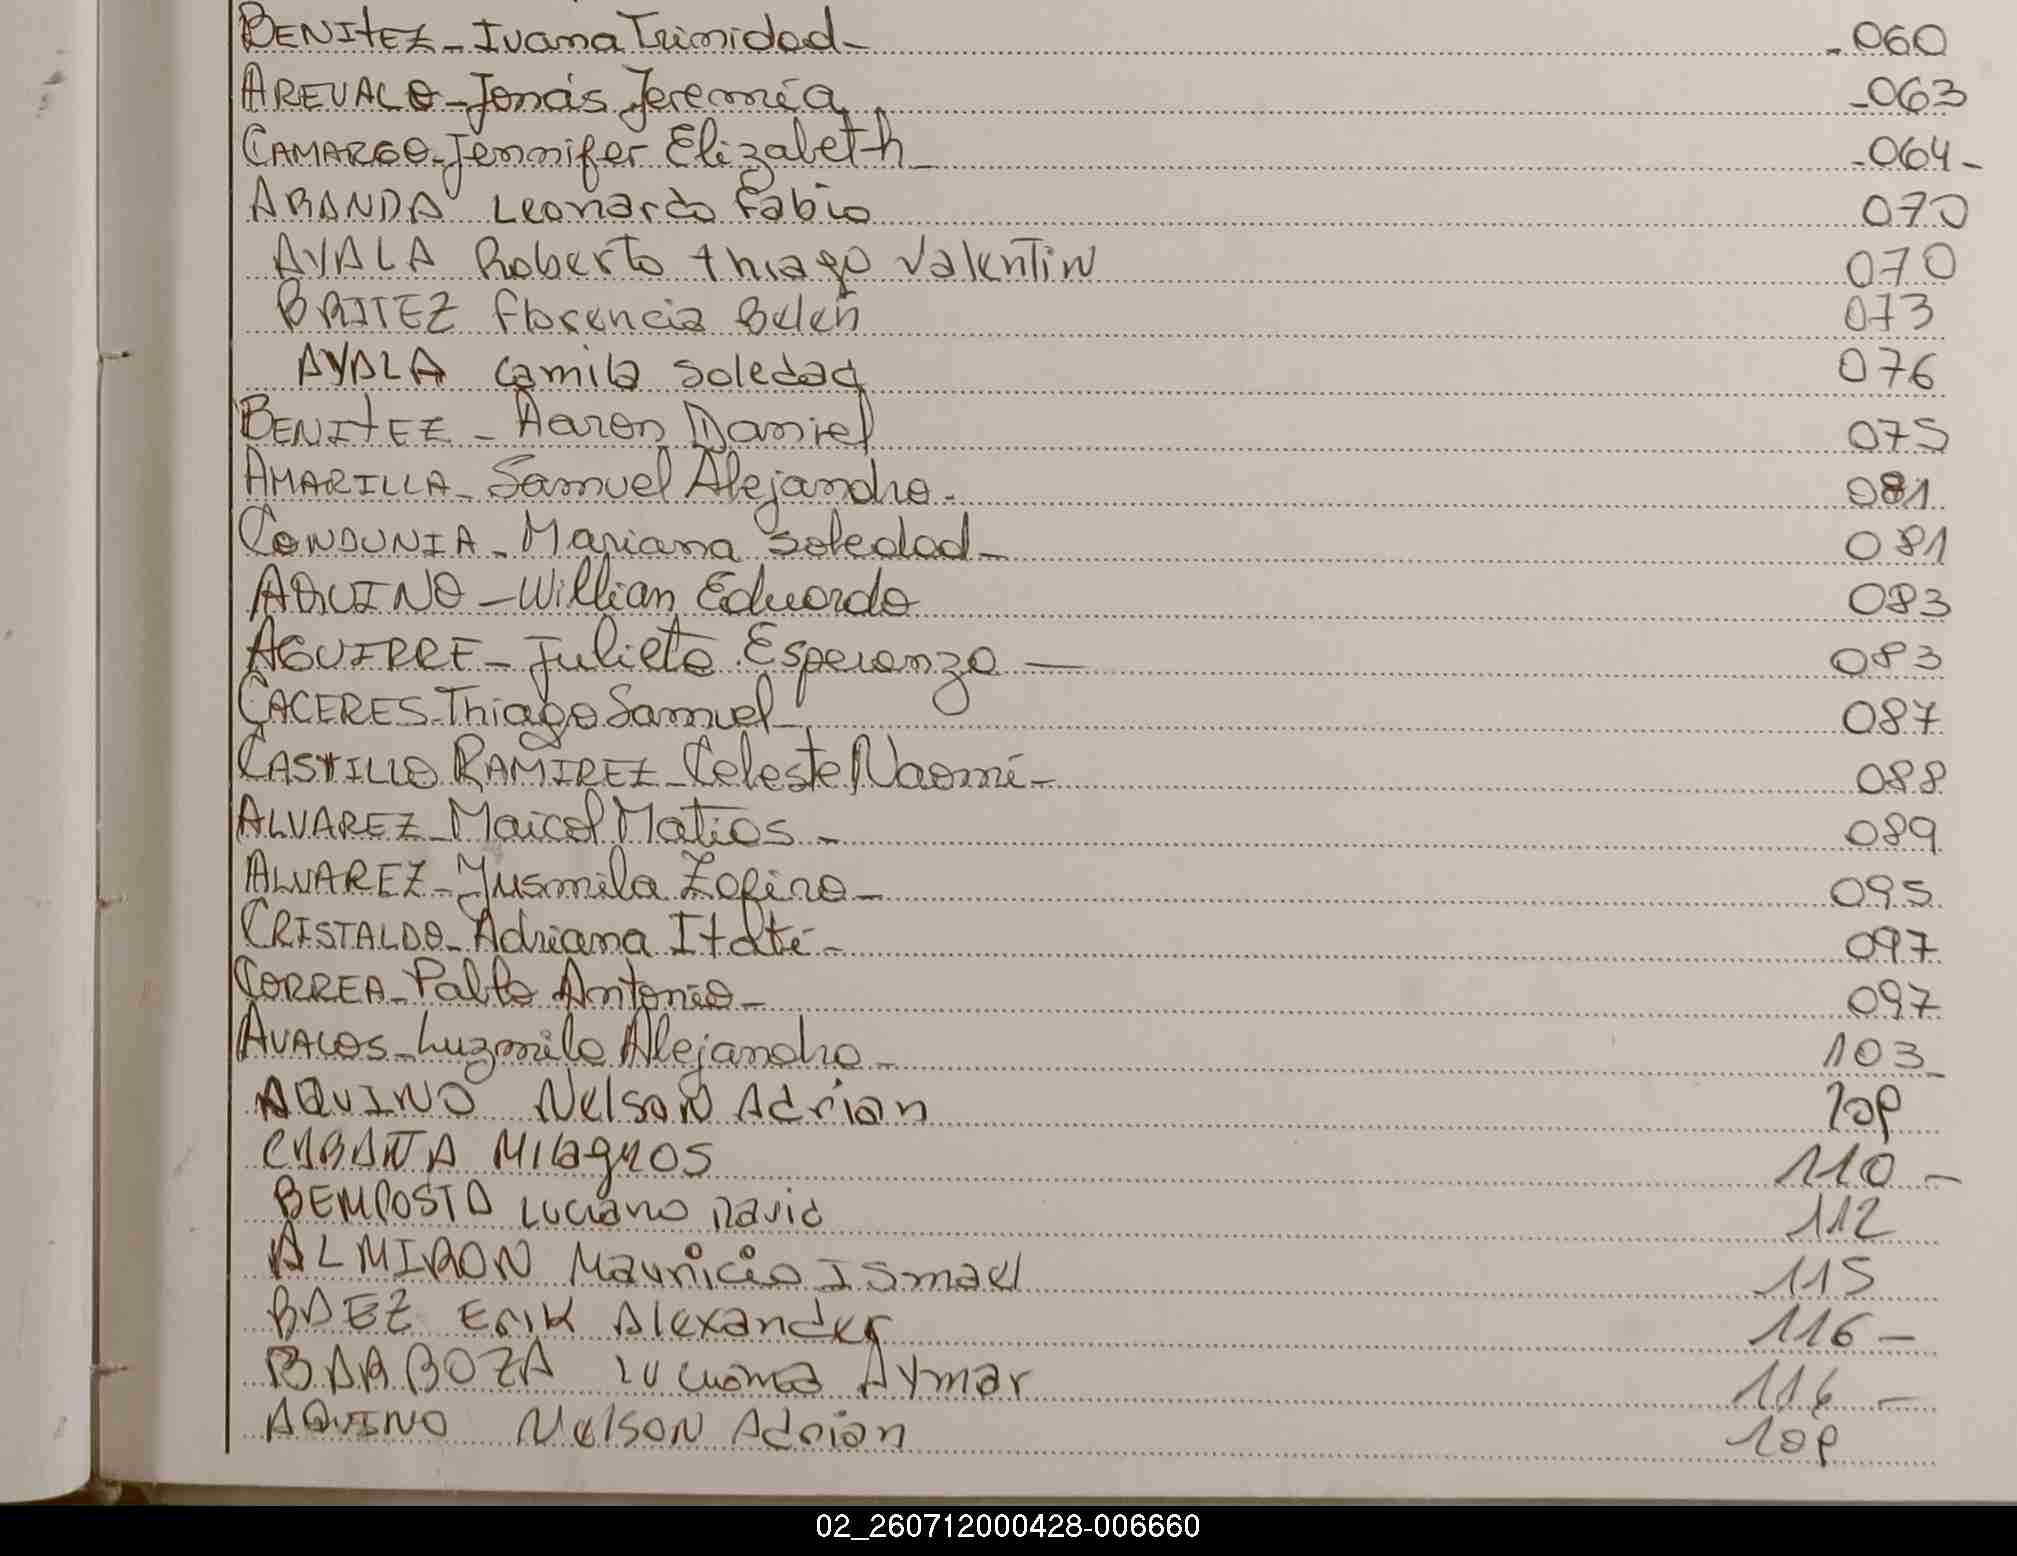 BENITEZ - Ivana Trinidad - - 060
AREVALO - Jonás Jeremía - 063
CAMARGO - Jennifer Elizabeth - - 064 -
ARANDA Leonardo fabio 070
AYALA Roberto thiago Valentin 070
BRITEZ florencia Belén 073
AYALA Camila Soledad 076
BENITEZ - Aaron Daniel 075
AMARILLA - Samuel Alejandro - 081
CONDUNIA - Mariana Soledad - 081
AQUINO - Willian Eduardo 083
AGUIRRE - Julieta Esperanza - 083
CACERES - Thiago Samuel - 087
CASTILLO RAMIREZ - Celeste Naomí - 088
ALVAREZ - Maicol Matias - 089
ALVAREZ - Yusmila Zafira - 095
CRISTALDO - Adriana Itatí - 097
CORREA - Pablo Antonio - 097
AVALOS - Luzmila Alejandra - 103 -
AQUINO Nelson Adrian 109
CABAÑA Milagros 110 -
BEMPOSTA Luciano David 112
ALMIRON Mauricio Ismael 115
BAEZ Erik Alexander 116 -
BARBOZA Luciana Aymar 116 -
AQUINO Nelson Adrian 109
02_260712000428-006660